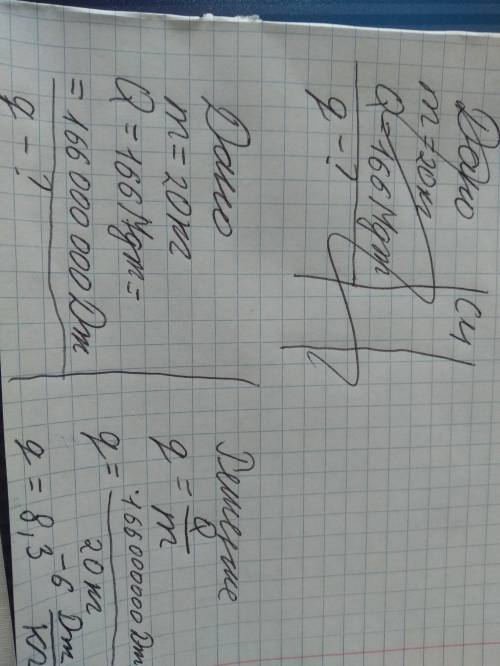 Дано
СИ
m = 20т
Q = 166 Мдж
q - ?
Дано
m = 20т
Q = 166 Мдж =
= 166 000 000 Дж
q - ?
Решение
q = Q/m
q = 166 000 000 Дж / 20т
q = 8,3 -6 Дж/кг